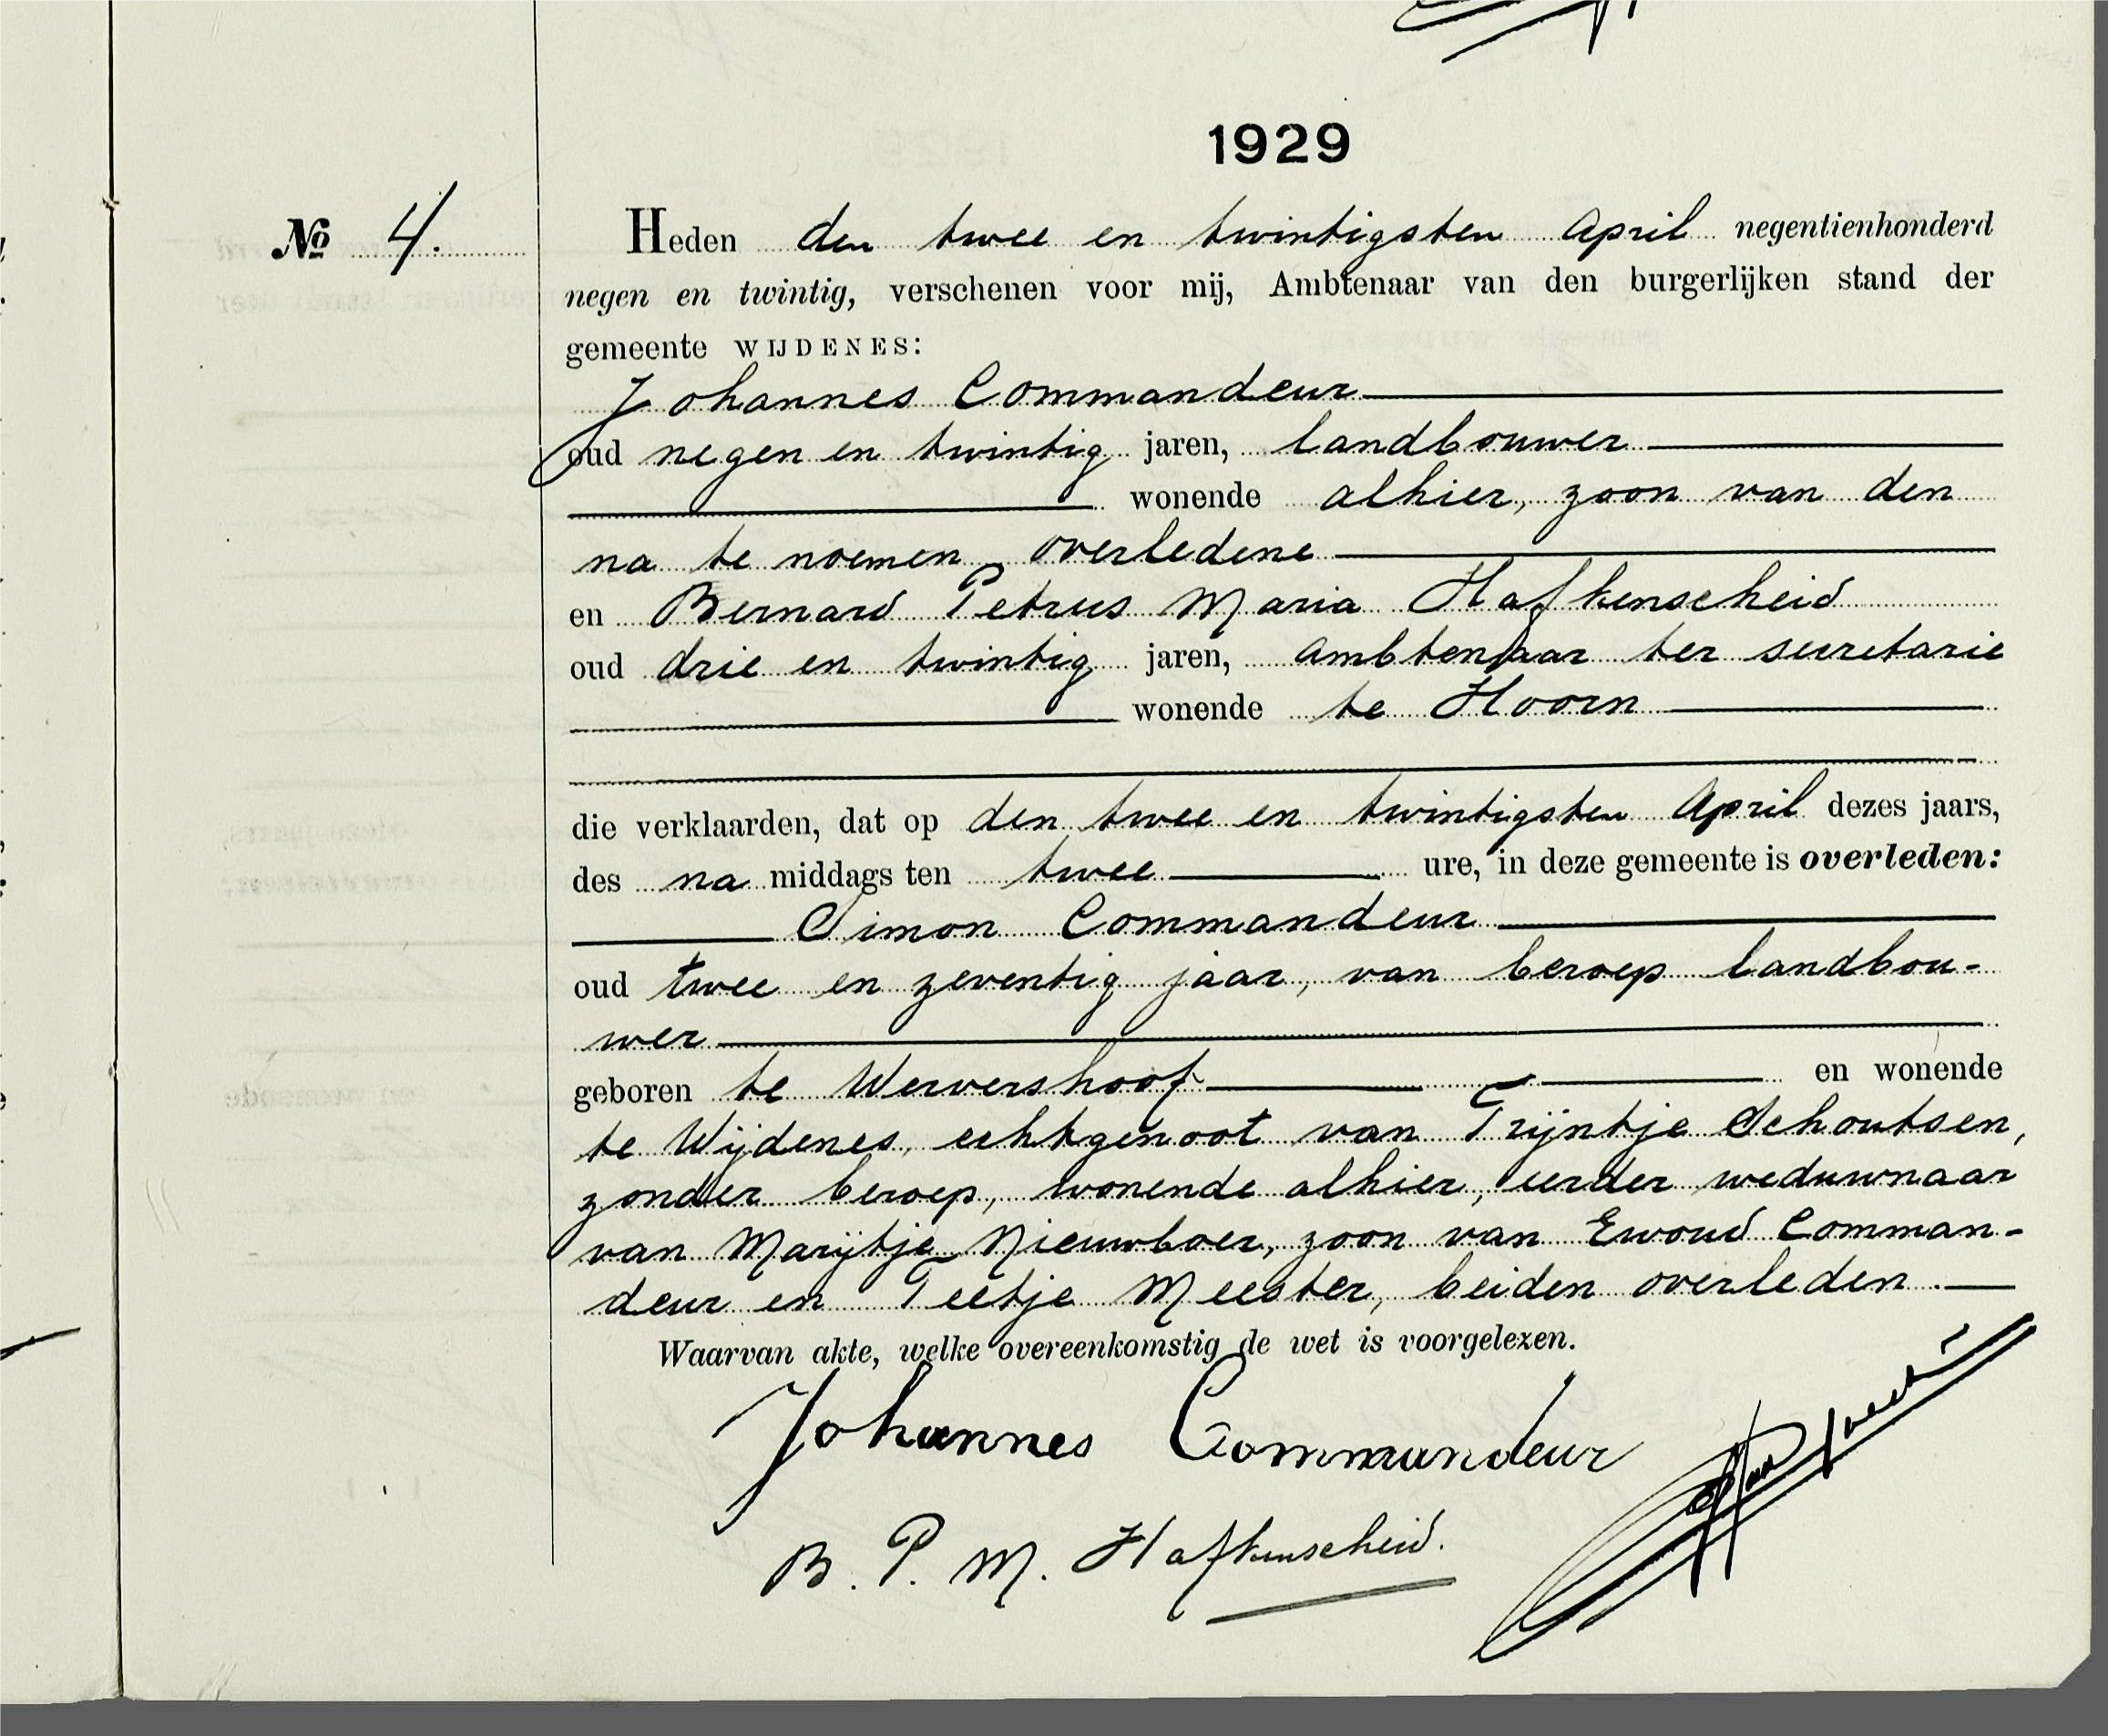 1929
No 4.
Heden den twee en twintigsten April negentienhonderd
negen en twintig, verschenen voor mij, Ambtenaar van den burgerlijken stand der
gemeente WIJDENES:
Johannes Commandeur
oud negen en twintig jaren, landbouwer
wonende alhier, zoon van den
na te noemen overledene
en Bernard Petrus Maria Hafkenscheid
oud drie en twintig jaren, ambtenaar ter secretarie
wonende te Hoorn
die verklaarden, dat op den twee en twintigsten April dezes jaars,
des na middags ten twee ure, in deze gemeente is overleden:
Simon Commandeur
oud twee en zeventig jaar, van beroep landbou-
wer
geboren te Wervershoof en wonende
te Wijdenes, echtgenoot van Trijntje Schoutsen,
zonder beroep, wonende alhier, eerder weduwnaar
van Marijtje Nieuwboer, zoon van Ewoud Comman-
deur en Teetje Meester, beiden overleden.
Waarvan akte, welke overeenkomstig de wet is voorgelezen.
Johannes Commandeur
B. P. M. Hafkenscheid.